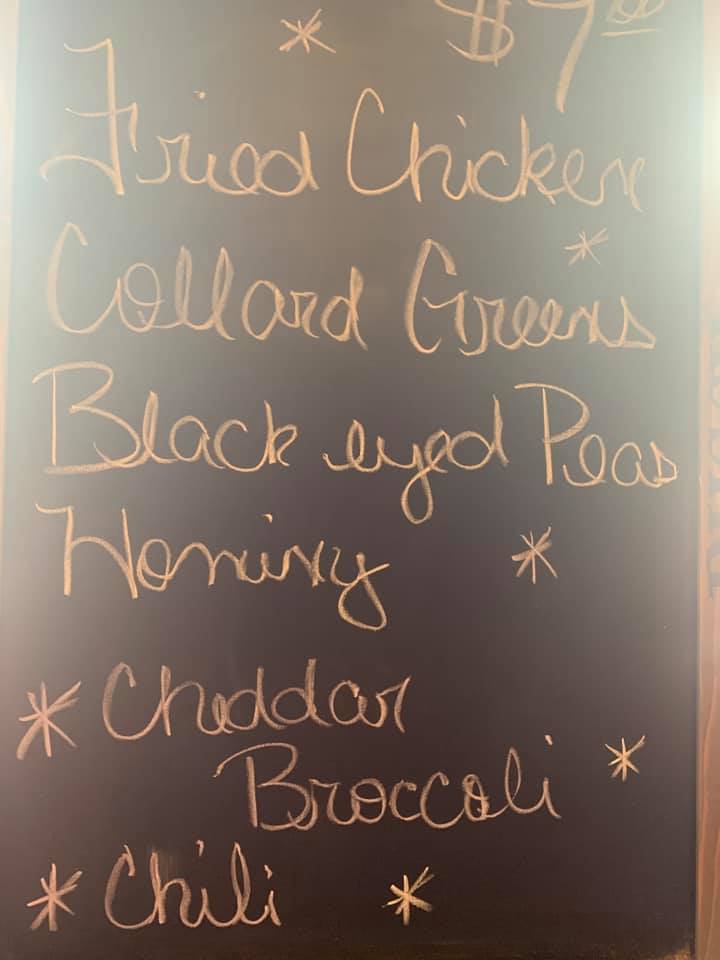 * $7.00
Fried Chicken
Collard Greens *
Black eyed Peas
Hominy *
* Cheddar
Broccoli *
* Chili *